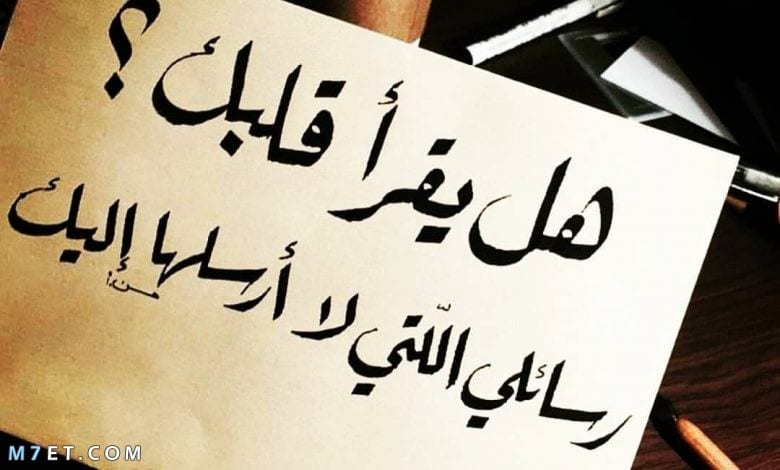 هل يقرأ قلبك ؟
رسائلي اللّتي لا أرسلها إليك
M7ET.COM